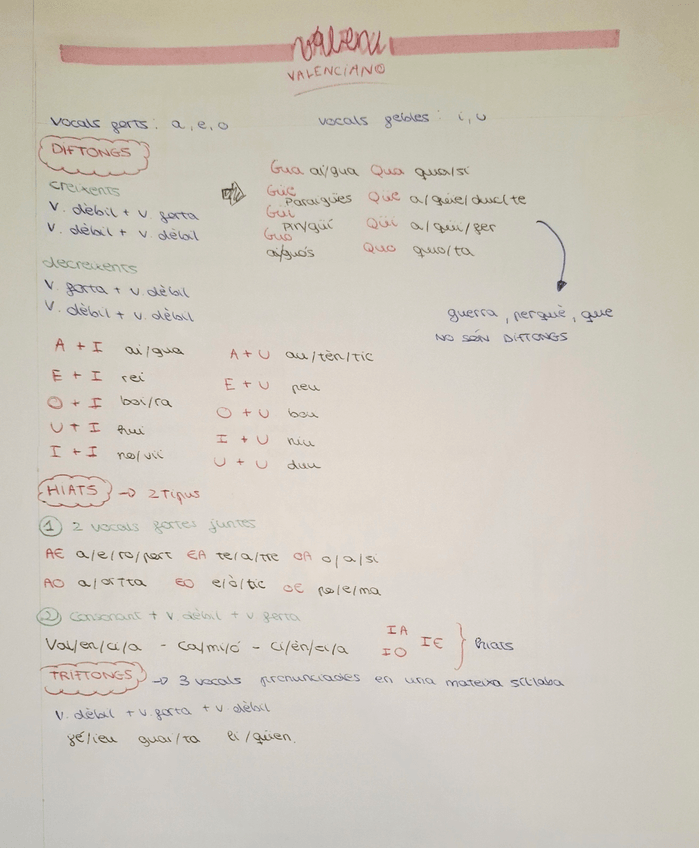 valencià
VALENCIANO
vocals forts: a, e, o vocals febles: i, u
DIFTONGS
creixents
V. dèbil + V. forta
V. dèbil + V. dèbil
Gua ai/gua Qua qua/si
Güe Parai/gües Qüe a/qüe/duc/te
Güi Pin/güí Qüi a/qüi/fer
Guo ai/guós Quo quo/ta
guerra, perquè, que
NO SÓN DIFTONGS
decreixents
V. forta + V. dèbil
V. dèbil + V. dèbil
A + I ai/gua A + U au/tèn/tic
E + I rei E + U peu
O + I boi/ra O + U bou
U + I hui I + U niu
I + I no/vii U + U duu
HIATS → 2 Tipus
① 2 vocals fortes juntes
AE a/e/ro/port EA te/a/tre OA o/a/si
AO a/or/ta EO e/ò/tic OE po/e/ma
② Consonant + V. dèbil + V. forta
Val/en/ci/a - Ca/mi/ó - Ci/èn/ci/a IA IO IE } hiats
TRIFTONGS → 3 vocals pronunciades en una mateixa síl·laba
V. dèbil + V. forta + V. dèbil
guai/ta